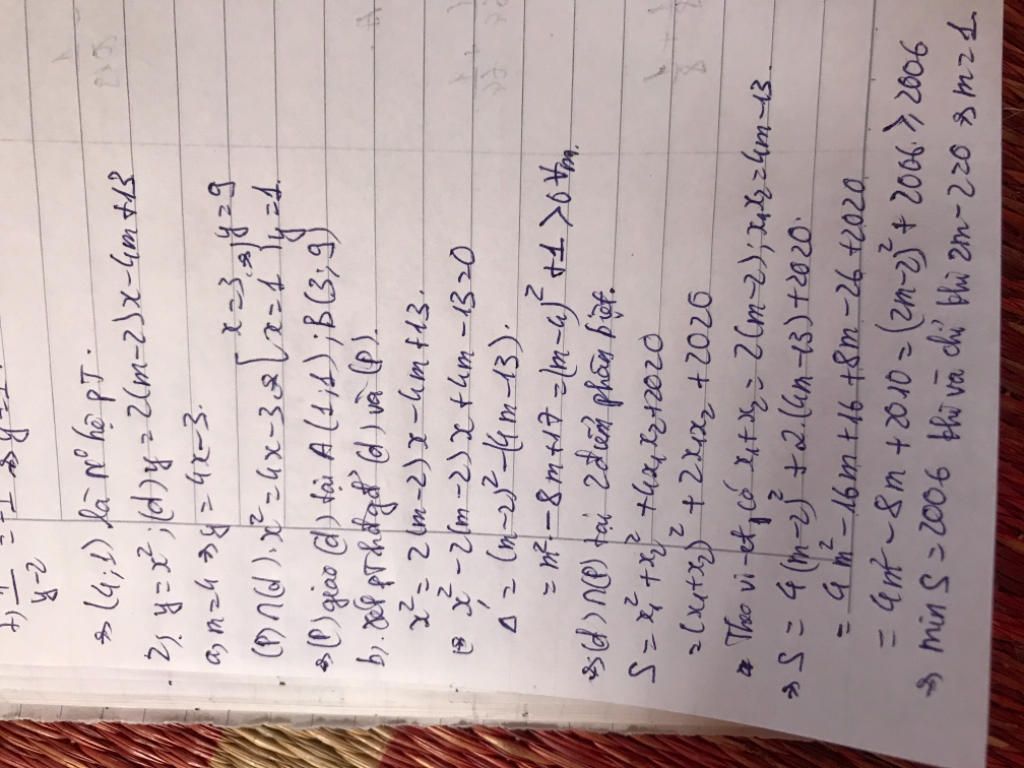 ⇒ (4,1) là N⁰ hệ pT.
2). y=x²; (d) y=2(m-2)x-4m+13
a, m=4 ⇒ y=4x-3.
(P)∩(d). x²=4x-3 ⇔ [x=3 x=1 ⇒ {y=9 y=1.
⇒ (P) giao (d) tại A(1;1); B(3;9)
b). Xét pT hđgđ (d) và (P).
x²=2(m-2)x-4m+13.
⇔ x²-2(m-2)x+4m-13=0
Δ' = (m-2)²-(4m-13).
= m²-8m+17=(m-4)²+1>0 ∀m.
⇒ (d)∩(P) tại 2 điểm phân biệt.
S = x₁²+x₂²+4x₁x₂+2020
= (x₁+x₂)²+2x₁x₂+2020
Theo vi-et, có x₁+x₂=2(m-2); x₁x₂=4m-13
⇒ S = 4(m-2)²+2.(4m-13)+2020.
= 4m²-16m+16+8m-26+2020
= 4m²-8m+2010=(2m-2)²+2006≥2006
⇒ min S=2006 khi và chỉ khi 2m-2=0 ⇒ m=1.